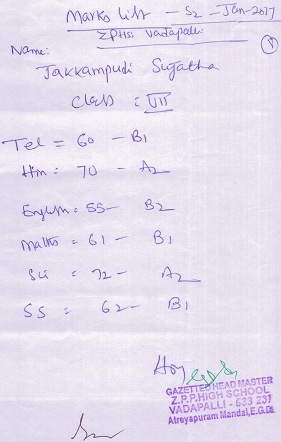 Marks list - S2 - Jan-2017
ZPHS: Vadapalli
Name:
Jakkampudi Sujatha
Class : VII
Tel = 60 - B1
Hin = 70 - A2
English = 55 - B2
Maths = 61 - B1
Sci = 72 - A2
SS = 62 - B1
GAZETTED HEAD MASTER
Z.P.P.HIGH SCHOOL
VADAPALLI - 533 237
Atreyapuram Mandal,E.G.Dt.